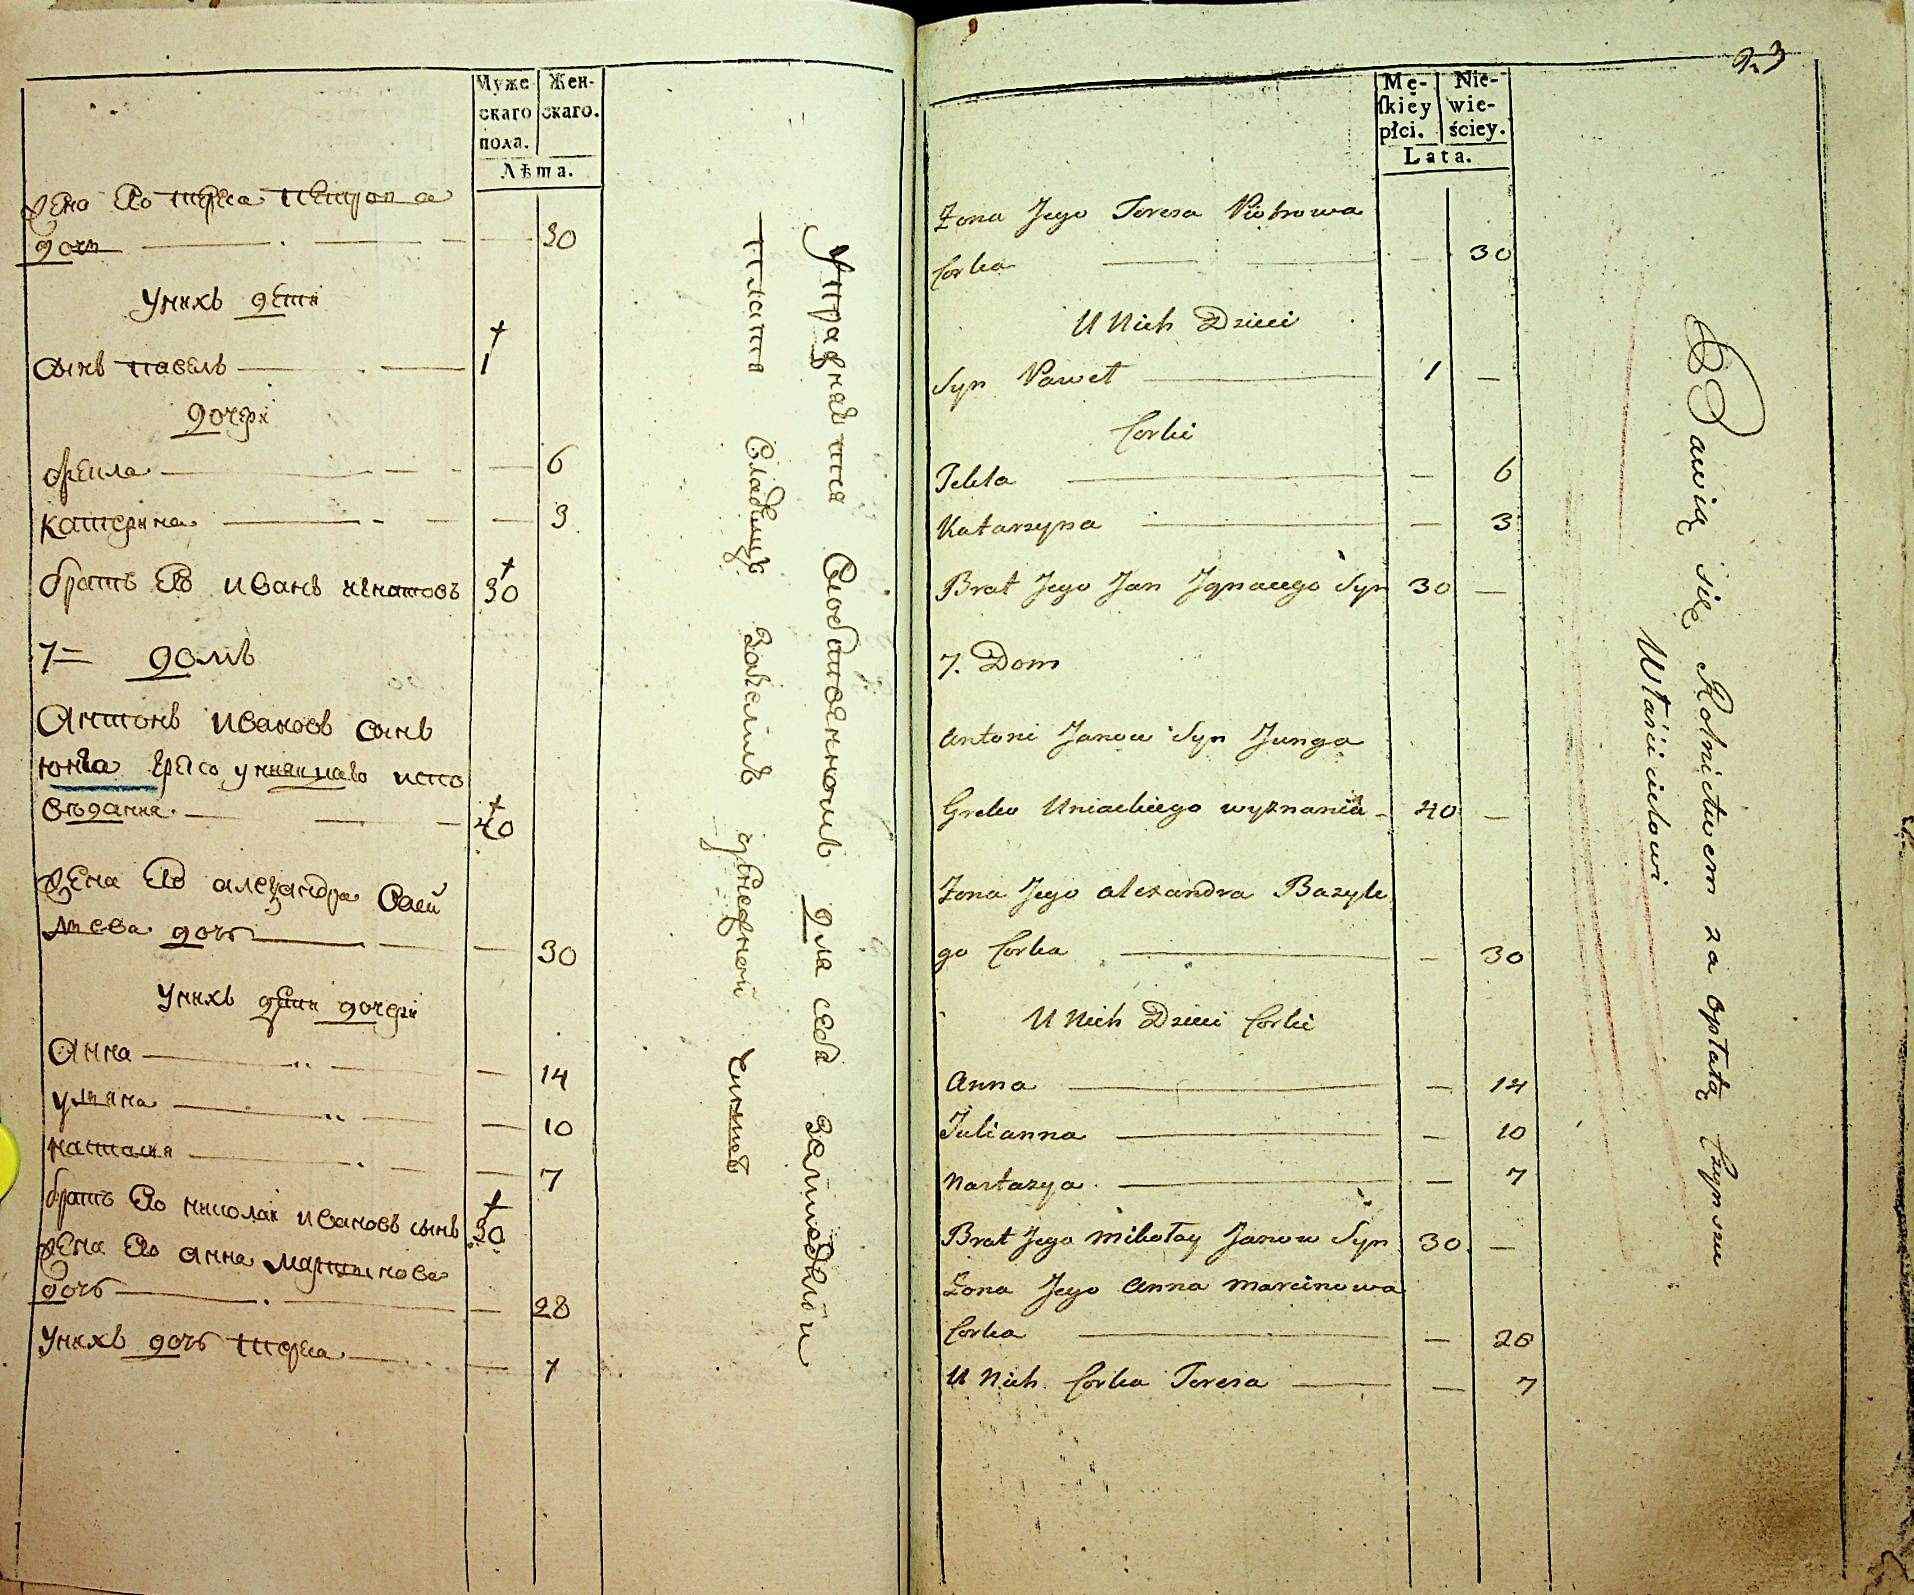 Муже
скаго
пола.
Жен-
скаго.
Лѣта.
Жена Его Тереса Петрова
дочь 30
У нихъ дети
Сынъ Павелъ 1
Дочери
6
Катерина 3
братъ Его Иванъ Игнатовъ 30
7= домъ
Антонъ Ивановъ сынъ
Юнга греко униацкаго испо
ведания 40
Жена Его Александра Васи
льева дочь 30
У нихъ дети дочери
Анна 14
Ульяна 10
Наталия 7
братъ Его Николай Ивановъ сынъ 30
Жена Его Анна Мартинова
дочь 28
У нихъ дочь Тереса 7
для себя
платя Владелцу чиншъ
23
Mę-
ſkiey
płci.
Nie-
wie-
ściey.
Lata.
Zona Jego Teresa Piotrowa
Corka 30
U Nich Dzieci
Syn Paweł 1 —
Corki
Tekla — 6
Katarzyna — 3
Brat Jego Jan Jgnacego Syn 30 —
7. Dom
Antoni Janow Syn Junga
Greko Uniackiego wyznania 40 —
Zona Jego Alexandra Bazyle
go Corka — 30
U Nich Dzieci Corki
Anna — 14
Julianna — 10
Nastazya — 7
Brat Jego Mikołay Janow Syn 30 —
Zona Jego Anna Marcinowa
Corka — 28
U Nich Corka Teresa — 7
Bawią się Rolnictwem za opłatą Czynszu
Włascicielowi